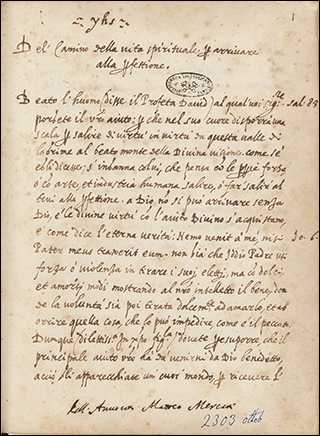 yhs
1
Del Camino della vita spirituale, p arrivare
alla pfettione.
Beato l'huomo (disse il Profeta David) al qual voi sigre sal. 83
porgete il vro aiuto: p che nel suo cuore disporrà una
scala p salire di virtù in virtù da questa valle di
lagrime al beato monte della Divina visione. come s'
egli dicesse, s'inganna colui, che pensa co le pprie forze
ò co arte, et industria humana salire, ò far salir al
tri alla pfettione. a Dio no si può arrivare senza
Dio, e le divine virtù co l'aiuto Divino s'acquistano,
e come dice l'eterna verità: Nemo venit à me, nisi Io. 6.
Pater meus traxerit eum. non già che Iddio Padre usi
forza ò violenza in tirare i suoi eletti, ma co dolci,
et amorosi modi mostrando al nro intelletto il bene, don
de la volontà sia poi tirata dolcemte ad amarlo, et ab
orrire quella cosa, che lo può impedire, come è il peccato.
Dunque dilettiss. In xpo figle, dovete psuporre, che il
principale aiuto vro hà da venirvi da Dio benedetto,
acciò gli apparecchiate un cuor mondo, p ricevere l'
Dell Matteo
2303 ottob